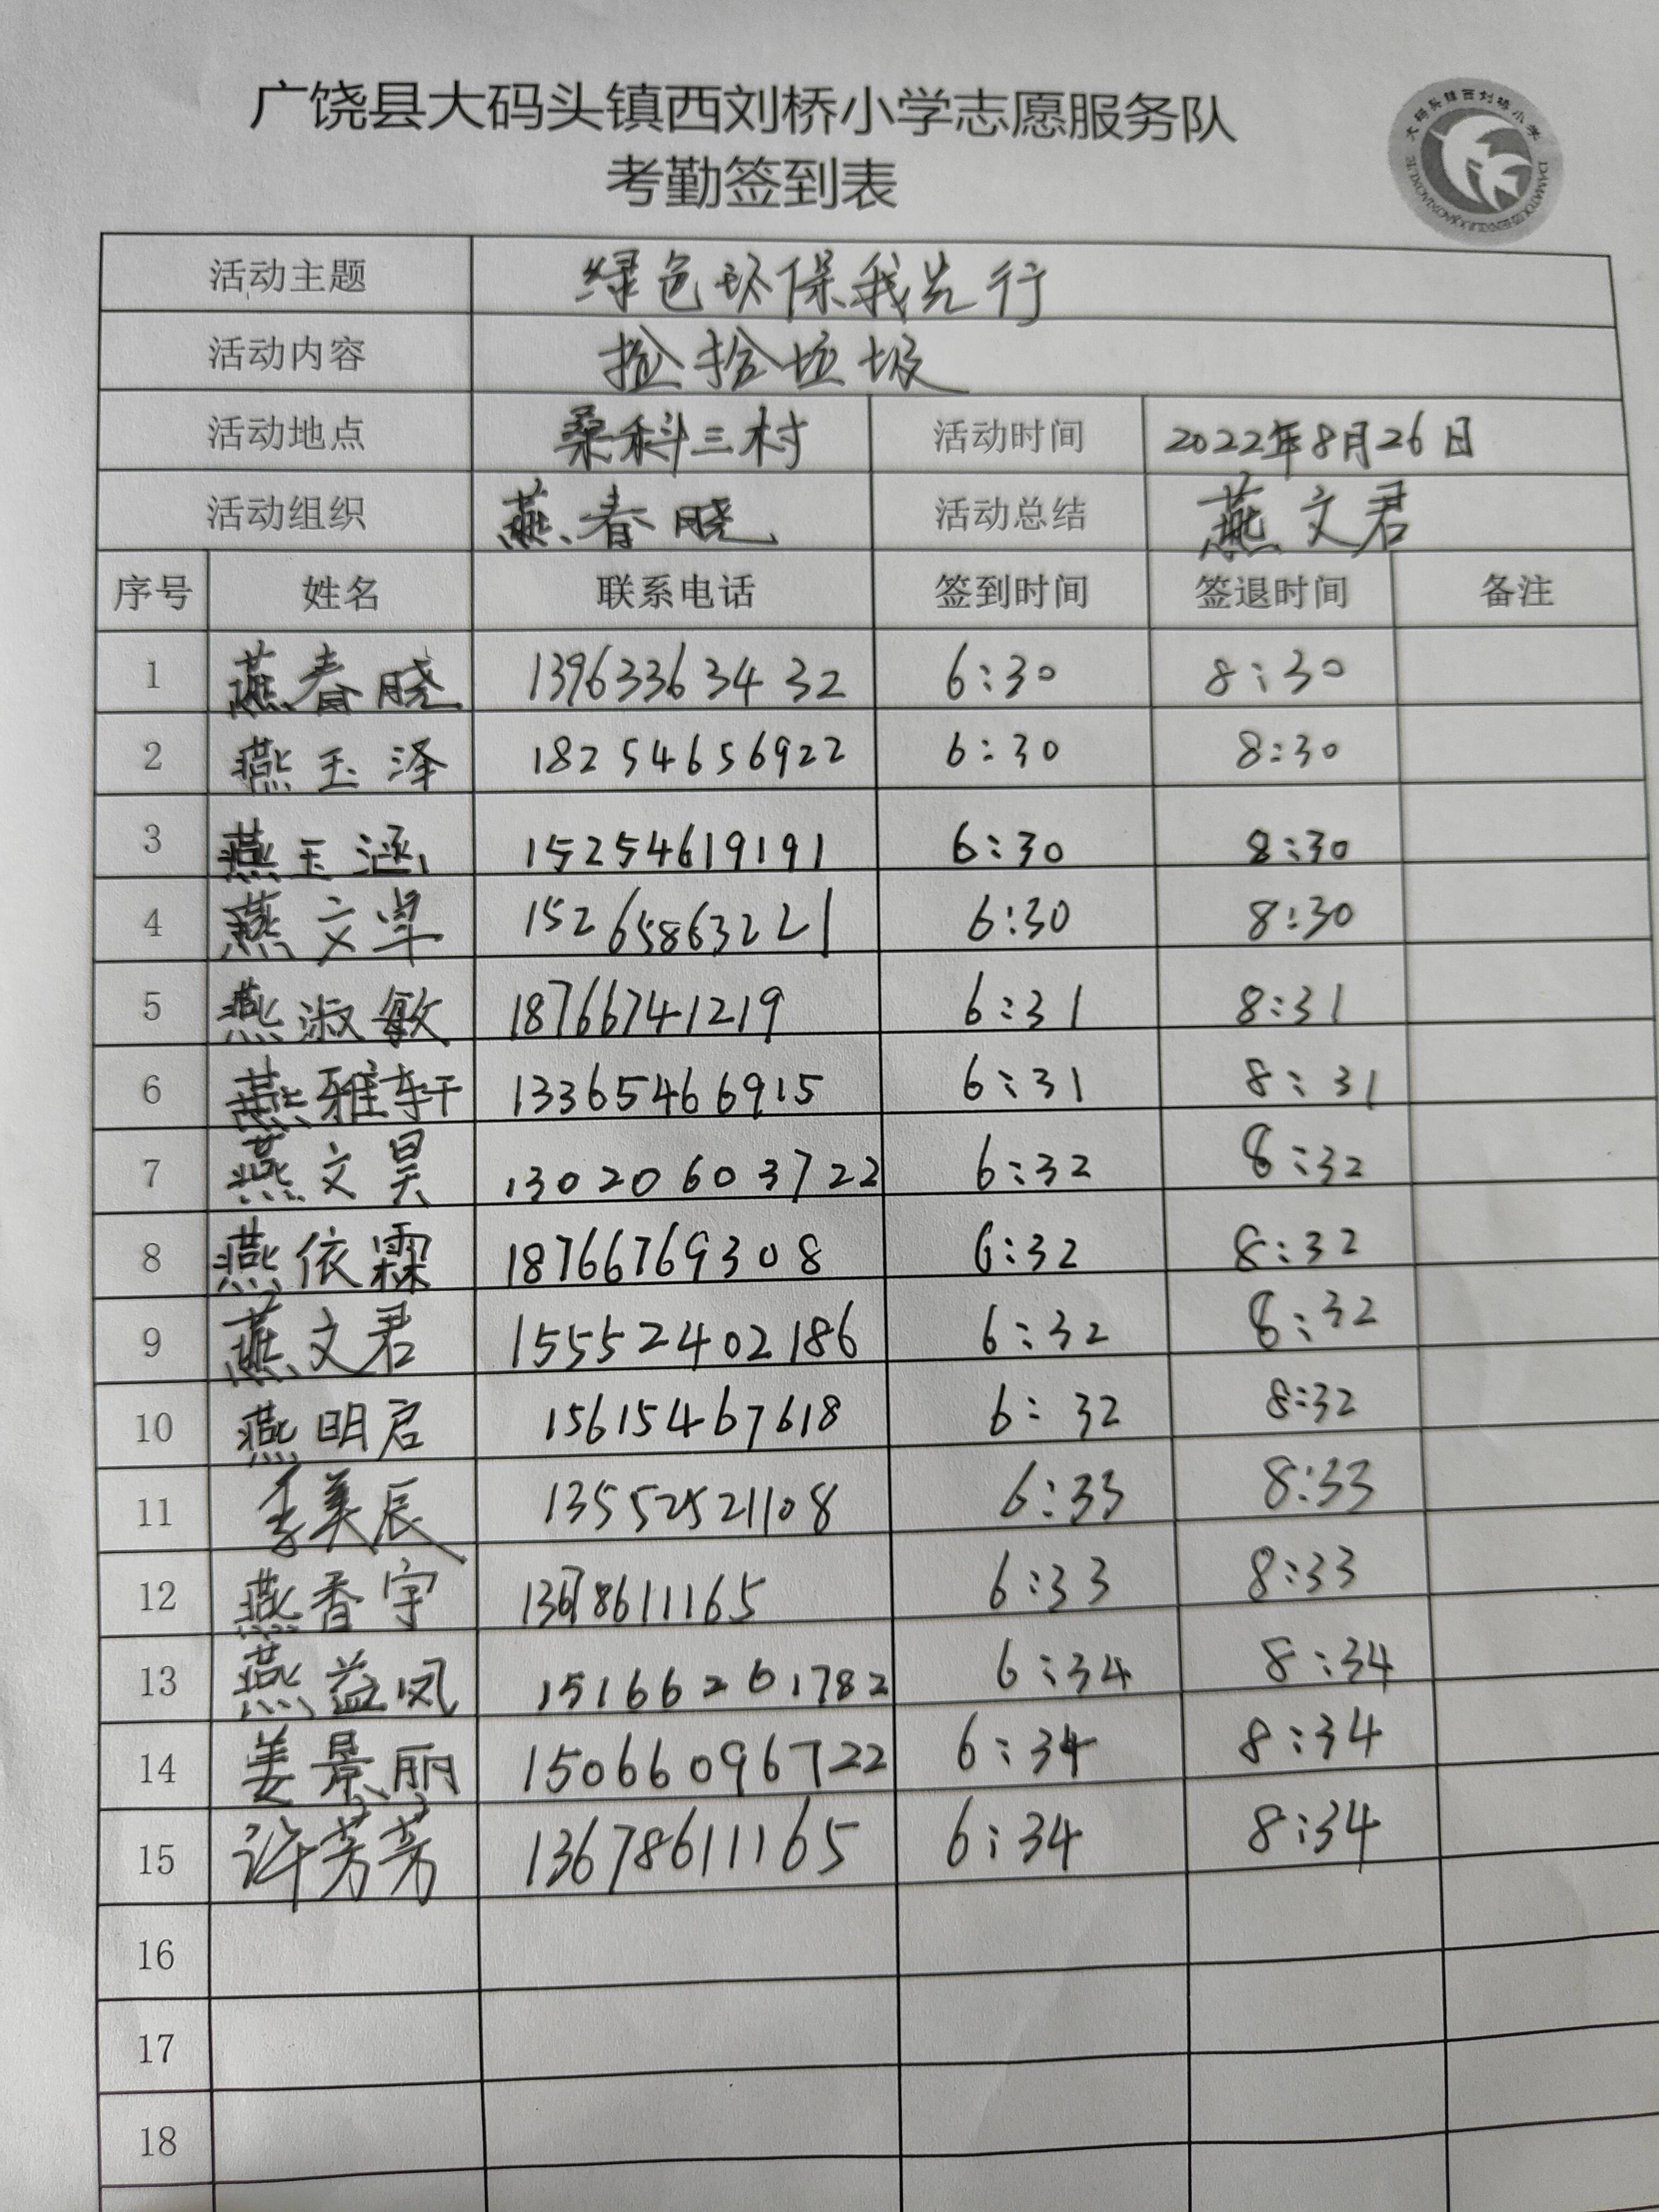 广饶县大码头镇西刘桥小学志愿服务队
考勤签到表
大码头镇西刘桥小学
活动主题 绿色环保我先行
活动内容 捡拾垃圾
活动地点 桑科三村 活动时间 2022年8月26日
活动组织 燕春晓 活动总结 燕文君
序号 姓名 联系电话 签到时间 签退时间 备注
1 燕春晓 13963363432 6:30 8:30
2 燕玉泽 18254656922 6:30 8:30
3 燕玉涵 15254619191 6:30 8:30
4 燕文卓 15265863221 6:30 8:30
5 燕淑敏 18766741219 6:31 8:31
6 燕雅轩 13365466915 6:31 8:31
7 燕文昊 13020603722 6:32 8:32
8 燕依霖 18766769308 6:32 8:32
9 燕文君 15552402186 6:32 8:32
10 燕明启 15615467618 6:32 8:32
11 李美辰 13552521108 6:33 8:33
12 燕香宇 13678611165 6:33 8:33
13 燕益凤 15166261782 6:34 8:34
14 姜景丽 15066096722 6:34 8:34
15 许芳芳 13678611165 6:34 8:34
16
17
18